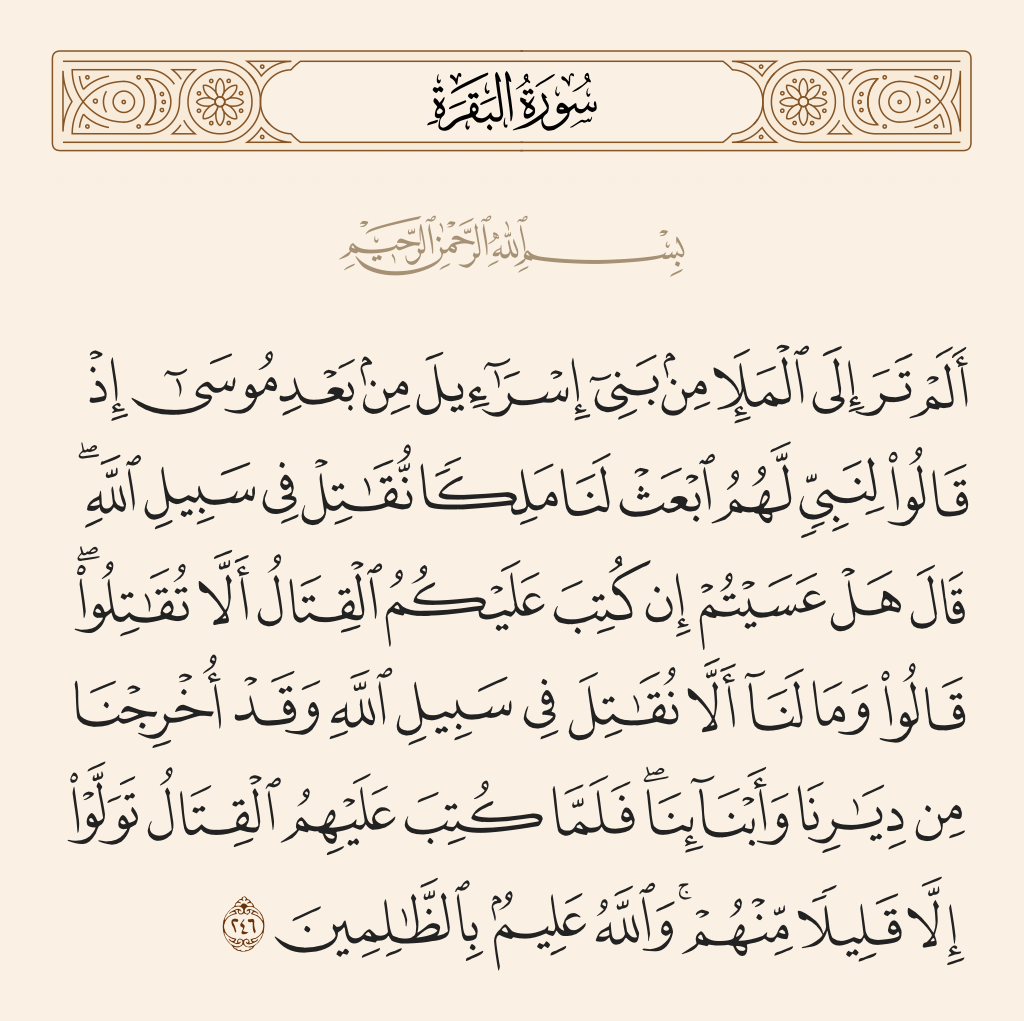 سُورَةُ البَقَرَةِ
بِسْمِ ٱللَّهِ ٱلرَّحْمَٰنِ ٱلرَّحِيمِ
أَلَمْ تَرَ إِلَى ٱلْمَلَإِ مِنۢ بَنِىٓ إِسْرَٰٓءِيلَ مِنۢ بَعْدِ مُوسَىٰٓ إِذْ
قَالُوا۟ لِنَبِىٍّ لَّهُمُ ٱبْعَثْ لَنَا مَلِكًا نُّقَـٰتِلْ فِى سَبِيلِ ٱللَّهِ ۖ
قَالَ هَلْ عَسَيْتُمْ إِن كُتِبَ عَلَيْكُمُ ٱلْقِتَالُ أَلَّا تُقَـٰتِلُوا۟ ۖ
قَالُوا۟ وَمَا لَنَآ أَلَّا نُقَـٰتِلَ فِى سَبِيلِ ٱللَّهِ وَقَدْ أُخْرِجْنَا
مِن دِيَـٰرِنَا وَأَبْنَآئِنَا ۖ فَلَمَّا كُتِبَ عَلَيْهِمُ ٱلْقِتَالُ تَوَلَّوْا۟
إِلَّا قَلِيلًا مِّنْهُمْ ۚ وَٱللَّهُ عَلِيمٌۢ بِٱلظَّـٰلِمِينَ ٢٤٦